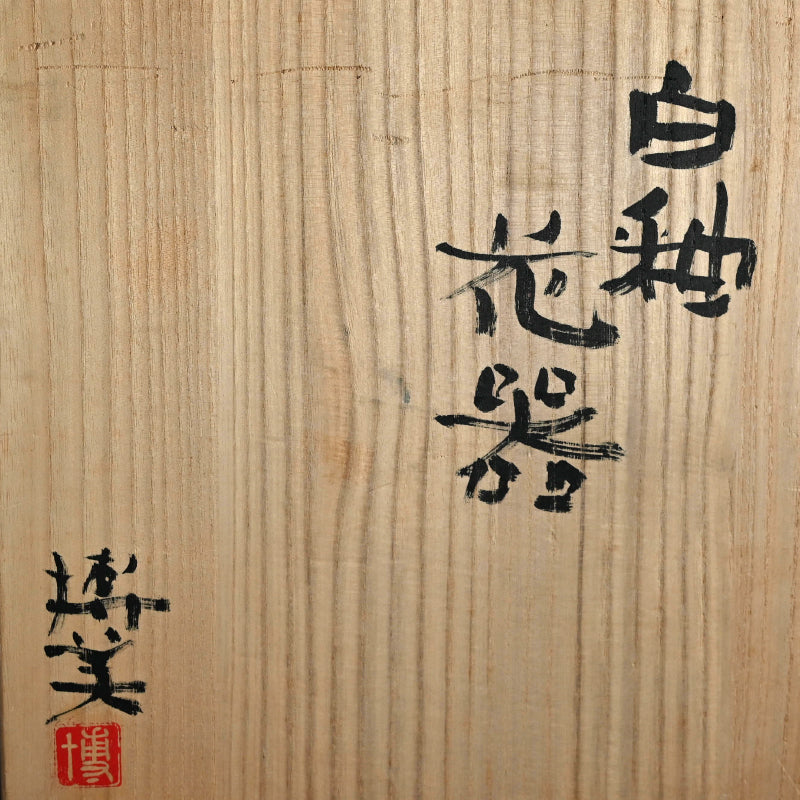 白釉
花器
博美
博